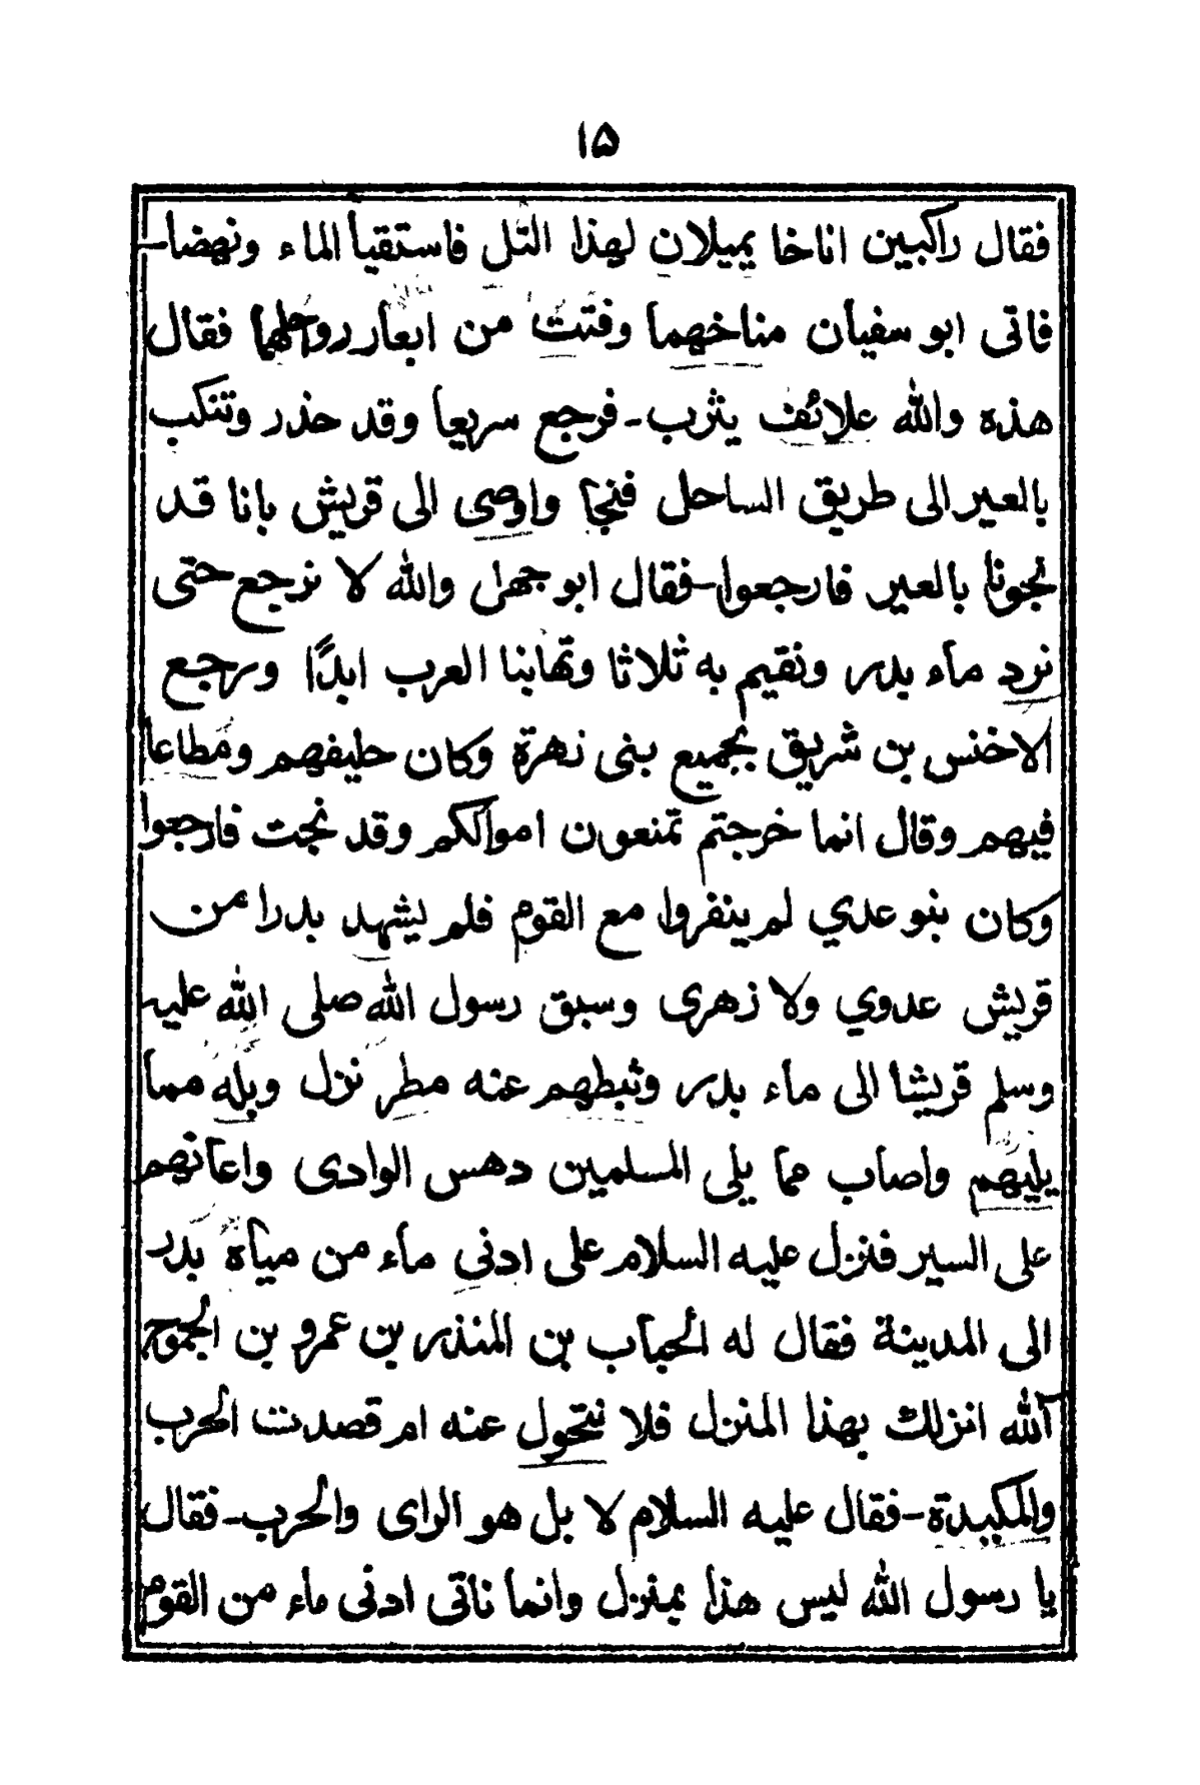 ١٥
فقال راكبين اناخا يميلان لهذا التل فاستقيا الماء ونهضا-
فاتى ابو سفيان مناخهما وفتت من ابعار رواحلهما فقال
هذه والله علائف يثرب-فرجع سريعا وقد حذر وتنكب
بالعير الى طريق الساحل فنجا واوصى الى قريش بانا قد
نجونا بالعير فارجعوا-فقال ابو جهل والله لا نرجع حتى
نرد ماء بدر ونقيم به ثلاثا وتهابنا العرب ابدًا ورجع
الاخنس بن شريق بجميع بنى زهرة وكان حليفهم ومطاعا
فيهم وقال انما خرجتم تمنعون اموالكم وقد نجت فارجعوا
وكان بنو عدي لم ينفروا مع القوم فلم يشهد بدرا من
قريش عدوي ولا زهرى وسبق رسول الله صلى الله عليه
وسلم قريشا الى ماء بدر وثبطهم عنه مطر نزل وبله مما
يليهم واصاب مما يلى المسلمين دهس الوادى واعانهم
على السير فنزل عليه السلام على ادنى ماء من مياه بدر
الى المدينة فقال له الحباب بن المنذر بن عمرو بن الجموح
آلله انزلك بهذا المنزل فلا نتحول عنه ام قصدت الحرب
والمكيدة-فقال عليه السلام لا بل هو الراى والحرب-فقال
يا رسول الله ليس هذا بمنزل وانما ناتى ادنى ماء من القوم